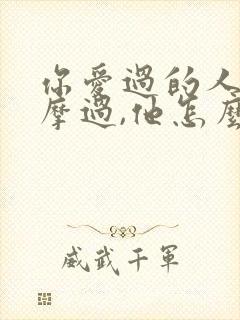 你愛過的人
摩過,他怎麼
威武千軍